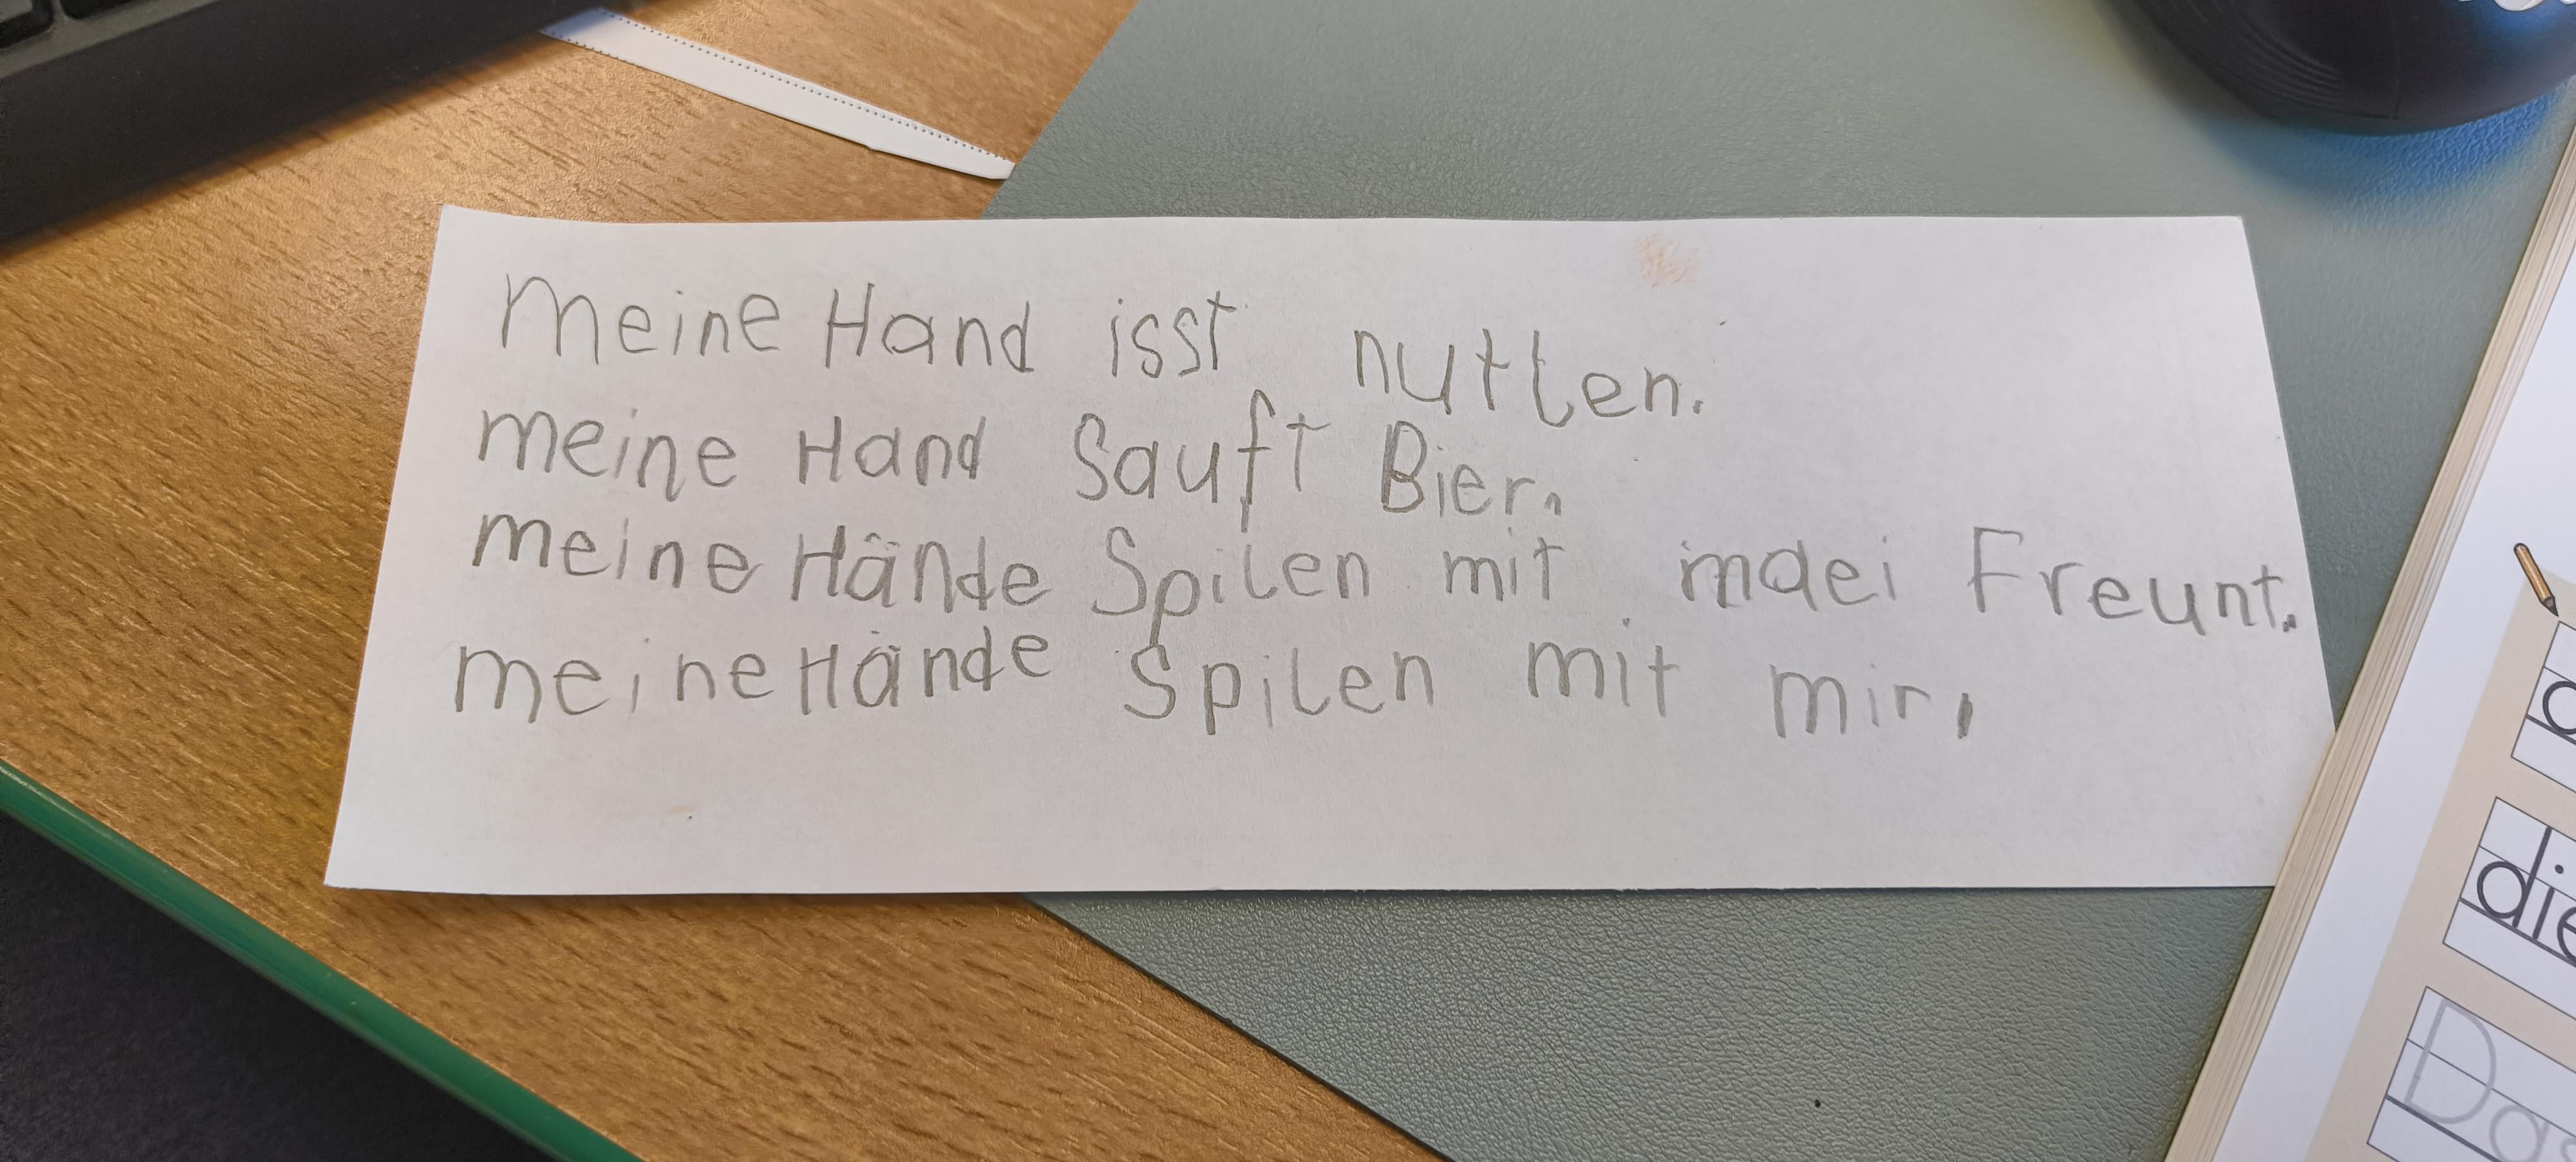 meine Hand isst nutlen.
meine Hand Sauft Bier.
meine Hände Spilen mit mdei Freunt.
meine Hände Spilen mit mir.
die
Da